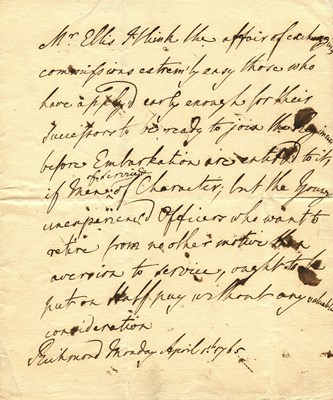 Mr. Ellis I think the affair of exchanging
commissions extremly easy those who
have apply'd early enough for their
Successors to be ready to join the Regiment
before Embarkation are entitl'd to it,
if men of Character, but the Young
unexperienc'd Officers who want to
retire from no other motive than
aversion to service, ought to be
put on Half pay without any valuable
consideration
Richmond Monday April 1st 1765